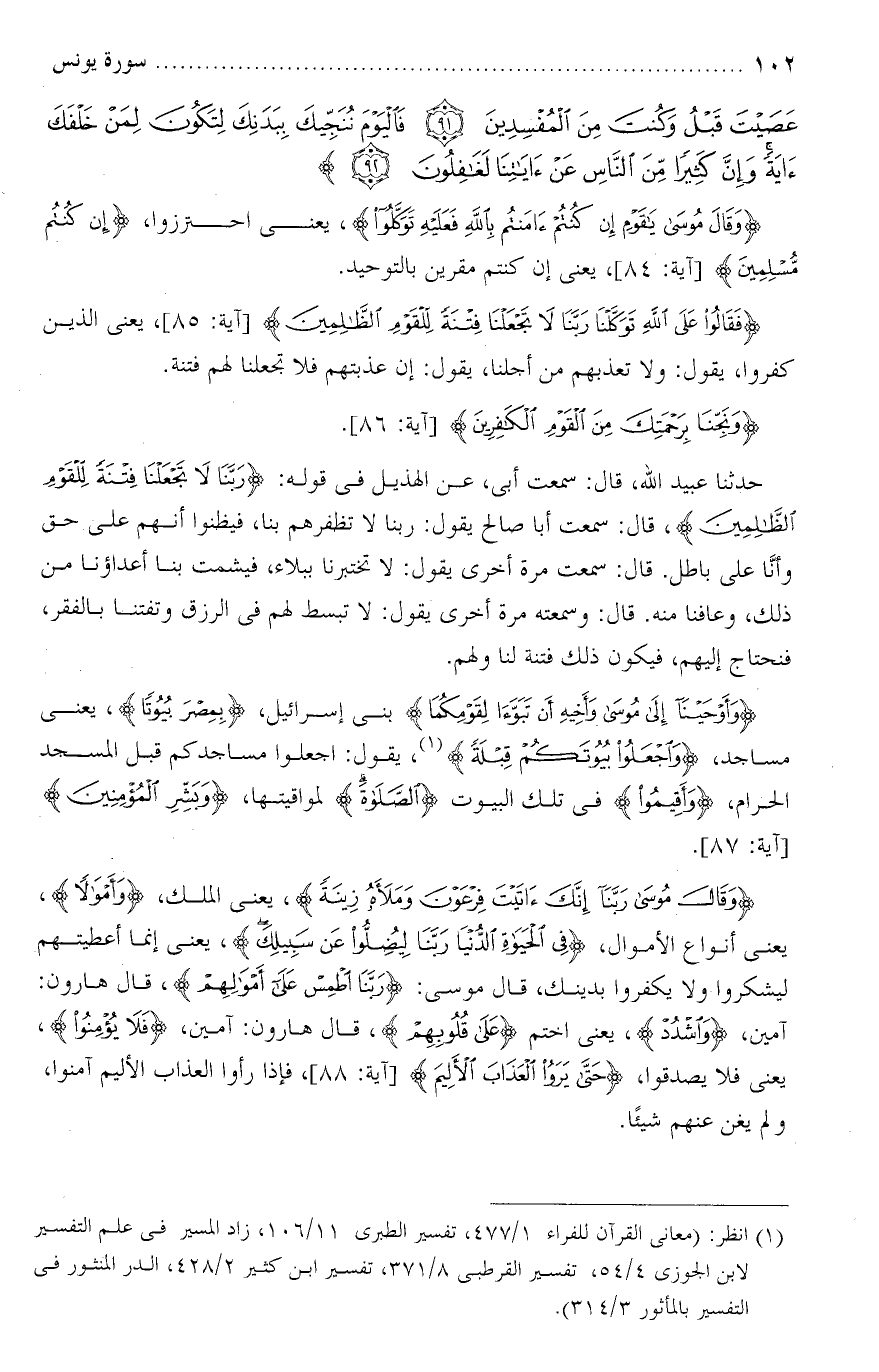 ١٠٢ ........................................................... سورة يونس
عَصَيْتَ قَبْلُ وَكُنتَ مِنَ ٱلْمُفْسِدِينَ ﴿٩١﴾ فَٱلْيَوْمَ نُنَجِّيكَ بِبَدَنِكَ لِتَكُونَ لِمَنْ خَلْفَكَ
ءَايَةً ۚ وَإِنَّ كَثِيرًا مِّنَ ٱلنَّاسِ عَنْ ءَايَٰتِنَا لَغَٰفِلُونَ ﴿٩٢﴾ ﴾
﴿وَقَالَ مُوسَىٰ يَٰقَوْمِ إِن كُنتُمْ ءَامَنتُم بِٱللَّهِ فَعَلَيْهِ تَوَكَّلُوٓا۟﴾، يعنـــى احــترزوا، ﴿إِن كُنتُم
مُّسْلِمِينَ﴾ [آية: ٨٤]، يعنى إن كنتم مقرين بالتوحيد.
﴿فَقَالُوا۟ عَلَى ٱللَّهِ تَوَكَّلْنَا رَبَّنَا لَا تَجْعَلْنَا فِتْنَةً لِّلْقَوْمِ ٱلظَّٰلِمِينَ﴾ [آية: ٨٥]، يعنى الذيـن
كفروا، يقول: ولا تعذبهم من أجلنا، يقول: إن عذبتهم فلا تجعلنا لهم فتنة.
﴿وَنَجِّنَا بِرَحْمَتِكَ مِنَ ٱلْقَوْمِ ٱلْكَٰفِرِينَ﴾ [آية: ٨٦].
حدثنا عبيد الله، قال: سمعت أبى، عـن الهذيـل فـى قولـه: ﴿رَبَّنَا لَا تَجْعَلْنَا فِتْنَةً لِّلْقَوْمِ
ٱلظَّٰلِمِينَ﴾، قال: سمعت أبا صالح يقول: ربنا لا تظفرهم بنا، فيظنوا أنـهم علـى حـق
وأنَّا على باطل. قال: سمعت مرة أخرى يقول: لا تختبرنا ببلاء، فيشمت بنـا أعداؤنـا مـن
ذلك، وعافنا منه. قال: وسمعته مرة أخرى يقول: لا تبسط لهم فى الرزق وتفتنـا بـالفقر،
فنحتاج إليهم، فيكون ذلك فتنة لنا ولهم.
﴿وَأَوْحَيْنَآ إِلَىٰ مُوسَىٰ وَأَخِيهِ أَن تَبَوَّءَا لِقَوْمِكُمَا﴾ بنـى إسـرائيل، ﴿بِمِصْرَ بُيُوتًا﴾، يعنـى
مسـاجد، ﴿وَٱجْعَلُوا۟ بُيُوتَكُمْ قِبْلَةً﴾(١)، يقـول: اجعلـوا مسـاجدكم قبـل المسـجد
الحـرام، ﴿وَأَقِيمُوا۟﴾ فـى تلـك البيوت ﴿ٱلصَّلَوٰةَ ۗ﴾ لمواقيتـها، ﴿وَبَشِّرِ ٱلْمُؤْمِنِينَ﴾
[آية: ٨٧].
﴿وَقَالَ مُوسَىٰ رَبَّنَآ إِنَّكَ ءَاتَيْتَ فِرْعَوْنَ وَمَلَأَهُۥ زِينَةً﴾، يعنـى الملـك، ﴿وَأَمْوَٰلًا﴾،
يعنـى أنـواع الأمـوال، ﴿فِى ٱلْحَيَوٰةِ ٱلدُّنْيَا رَبَّنَا لِيُضِلُّوا۟ عَن سَبِيلِكَ ۖ﴾، يعنـى إنمـا أعطيتـهم
ليشكروا ولا يكفروا بدينـك، قـال موسـى: ﴿رَبَّنَا ٱطْمِسْ عَلَىٰٓ أَمْوَٰلِهِمْ﴾، قـال هـارون:
آمين، ﴿وَٱشْدُدْ﴾، يعنى اختم ﴿عَلَىٰ قُلُوبِهِمْ﴾، قـال هـارون: آمـين، ﴿فَلَا يُؤْمِنُوا۟﴾،
يعنى فلا يصدقوا، ﴿حَتَّىٰ يَرَوُا۟ ٱلْعَذَابَ ٱلْأَلِيمَ﴾ [آية: ٨٨]، فإذا رأوا العذاب الأليم آمنوا،
ولم يغن عنهم شيئًا.
(١) انظر: (معانى القرآن للفراء ٤٧٧/١، تفسير الطبرى ١٠٦/١١، زاد المسير فـى علـم التفسير
لابن الجوزى ٥٤/٤، تفسير القرطبـى ٣٧١/٨، تفسير ابـن كثـير ٤٢٨/٢، الـدر المنثور فـى
التفسير بالمأثور ٣١٤/٣).